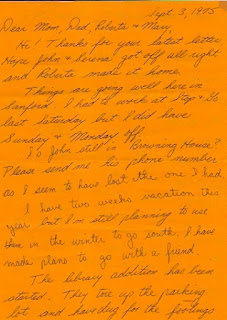 Sept. 3, 1975
Dear Mom, Dad, Roberta & Mary,
Hi! Thanks for your latest letter.
Hope John & Serena got off all right
and Roberta made it home.
Things are going well here in
Sanford. I had to work at Stop & Go
last Saturday but I did have
Sunday & Monday off.
Is John still in Browning House?
Please send me his phone number
as I seem to have lost the one I had.
I have two weeks vacation this
year but I'm still planning to use
them in the winter to go south. I have
made plans to go with a friend.
The library addition has been
started. They tore up the parking
lot and have dug for the footings